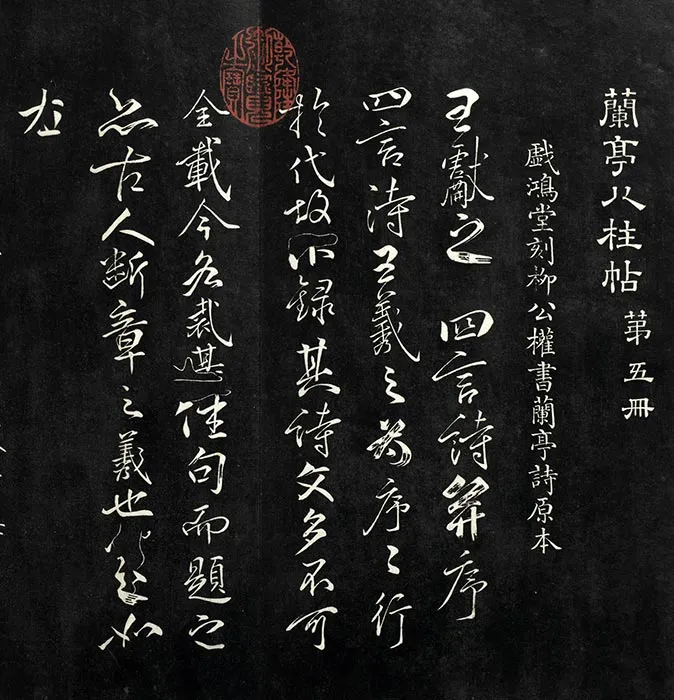 蘭亭八柱帖 苐五冊
戲鴻堂刻柳公權書蘭亭詩原本
王獻之 四言詩并序
四言詩王羲之為序〻行
於代故不録其詩文多不可
全載今各裁佳句而題之
亦古人斷章之義也如
左
乾隆御覽之寶